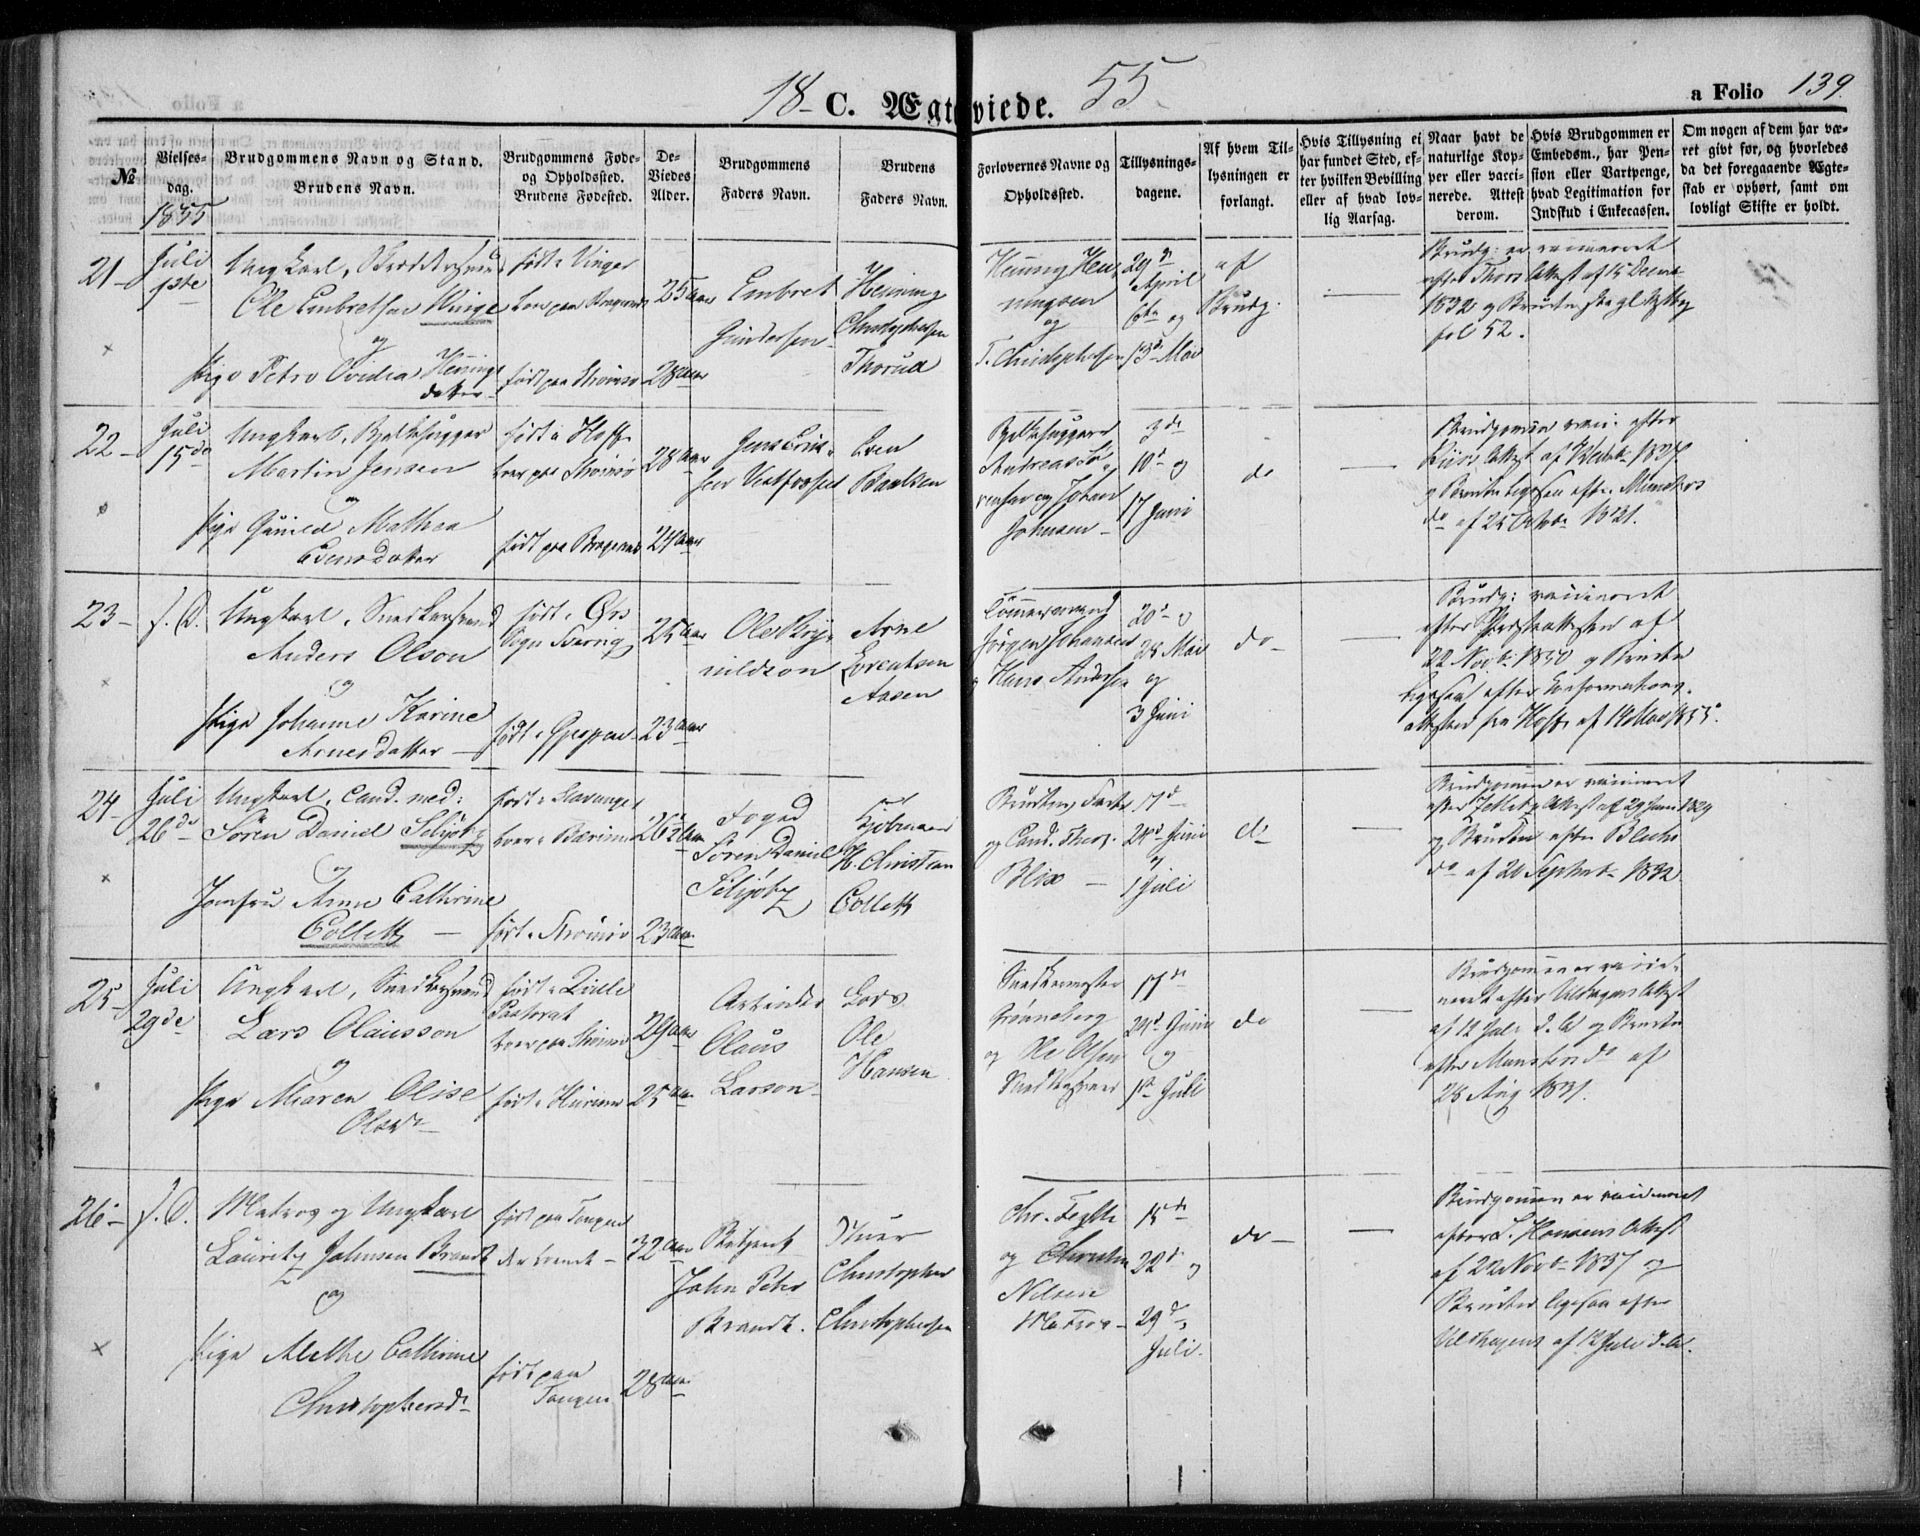 18 C. Ægteviede. 55.
a Folio 139.
№
Vielses-
dag.
Brudgommens Navn og Stand.
Brudens Navn.
Brudgommens Føde-
og Opholdssted.
Brudens Fødested.
De-
Viedes
Alder.
Brudgommens
Faders Navn.
Brudens
Faders Navn.
Forlovernes Navne og
Opholdssted.
Tillysnings-
dagene.
Af hvem Til-
lysningen er
forlangt.
Hvis Tillysning ei
har fundet Sted, ef-
ter hvilken Bevilling
eller af hvad lov-
lig Aarsag.
Naar havt de
naturlige Kop-
per eller vacci-
nerede. Attest
derom.
Hvis Brudgommen er
Embedsm., har Pen-
sion eller Vartpenge,
hvad Legitimation for
Indskud i Enkecassen.
Om nogen af dem har væ-
ret givt før, og hvorledes
da det foregaaende Ægte-
skab er ophørt, samt om
lovligt Skifte er holdt.
1855
21-
Juli
1ste
Ungkarl,
Ole Embretsen Winge
og
Pige Petro Ovedia Hennings
datter
født i Vinger
født paa Strømsø
25 Aar
28 Aar
Embret
Gundersen
Henning
Christophersen
Thorud
Henning Hen
ningsen
og
T. Christophersen
29de
April
6te og
13de Mai
af
Brudg.
Brudg: er vaccineret
efter Thors Attest af 15 Decemb
1832 og Bruden
fol 52.
22-
Juli
15de
Ungkarl, Bjelkehugger
Martin Jensen
og
Pige Gunild Mathea
Evensdatter
født i Hoff
boer paa Strømsø
født paa Bragernes
28 Aar
24 Aar
Jens Erik-
sen Vestfossen
Even
Paulsen
Bjelkehuggere
Andreas Sø-
rensen og Johan
Johnsen
3de
10de og
17 Juni
do
Brudgommen vacc: efter
Attest af
og Bruden ligesaa efter Münsters
do af 25 Octobr 1831.
23-
s. D.
Ungkarl, Snedkersvend
Anders Olson
og
Pige Johanne Karine
Arnesdatter
født i Ørs
Sogn Sverrig
født i Gjerpen
25 Aar
23 Aar
Ole Bryn-
nildson
Arne
Lorentsen
Aasen
Jørgen Johansen
og Hans Andersen
20de og
28 Mai
og
3 Juni
do
Brudg: vaccineret
efter Præsteattesten af
22 Novb: 1850 og Bruden
ligesaa efter Confirmations-
attesten fra Hoff af 14 Mai 1855.
24-
Juli
26de
Ungkarl, Cand. med:
Søren Daniel Schiøtz
og
Jomfru Anne Cathrine
Collett
født i Stavanger
boer i Bærum
født i Strømsø
26½ Aar
23 Aar
Foged
Søren Daniel
Schiøtz
Kjøbmand
H. Christian
Collett
Brudens Fader
og Cand. Theol.
Blix
17de
24de Juni
og
1 Juli
do
Brudgommen er vaccineret
efter Attest af 29 Juni 1829
og Bruden efter Blichs
do af 20 Septembr 1832
25-
Juli
29de
Ungkarl, Snedkersvend
Lars Olausson
og
Pige Maren Olise
Olsdr
født i Lille
Pastorat
boer paa Strømsø
født i Hurum
29 Aar
25 Aar
Arbeider
Olaus
Larson
Lods
Ole
Hansen
Snedkermester
Grønneberg
og Ole Olsen
Snedkersvend
17de
24de Juni
og
1ste Juli
do
Brudgommen er vacci-
neret efter Uldhagens Attest
af 12 Juli d. A og Bruden
efter Münsters do af
28 Aug 1831.
26-
s. D.
Matros og Ungkarl
Lauritz Johnsen Brandt
og
Pige Alethe Cathrine
Christophersdr
født paa Tangen
født paa
Tangen
32 Aar
28 Aar
John Peter
Brandt.
Christopher
Christophersen
Chr. Tegtte
og Christen
Nilsen
Matros
15de
22de og
29de
Juli.
do
Brudgommen er vaccineret
efter L. Hansens Attest
af 22 Novb 1837 og
Bruden ligesaa efter
Uldhagens af 12 Juli d. A.